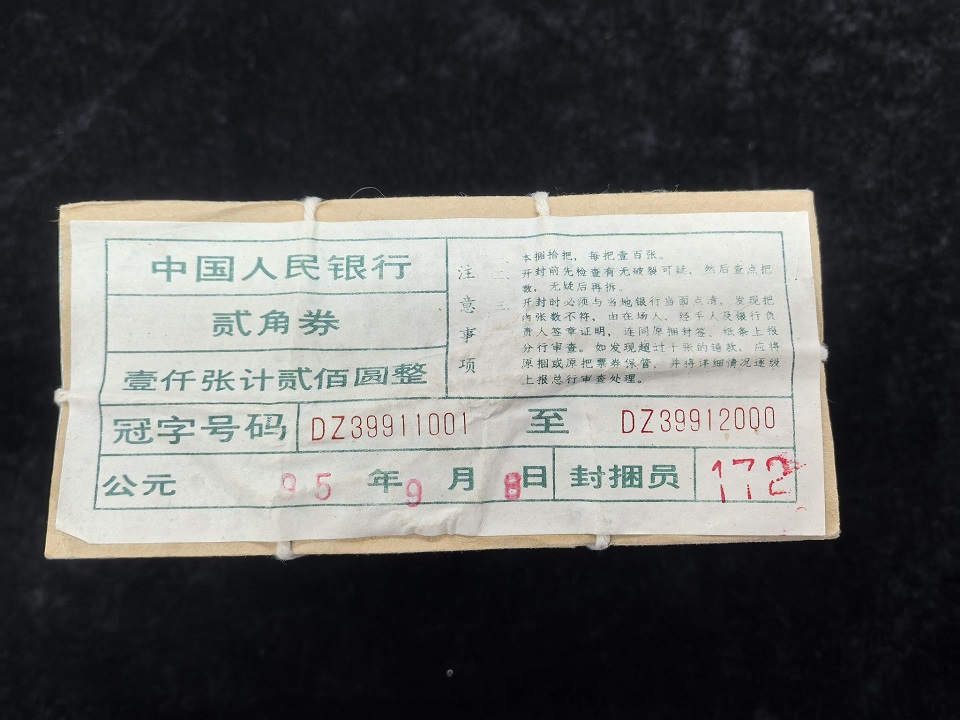 中国人民银行
贰角券
壹仟张计贰佰圆整
注意事项
一、本捆拾把，每把壹百张。
二、开封前先检查有无破裂可疑，然后查点把
数，无疑后再拆。
三、开封时必须与当地银行当面点清，发现把
内张数不符，由在场人、经手人及银行负
责人签章证明，连同原捆封签、纸条上报
分行审查。如发现超过十张的错款，应将
原捆或原把票券保管，并将详细情况逐级
上报总行审查处理。
冠字号码 DZ39911001 至 DZ39912000
公元 95 年 9 月 8 日 封捆员 172